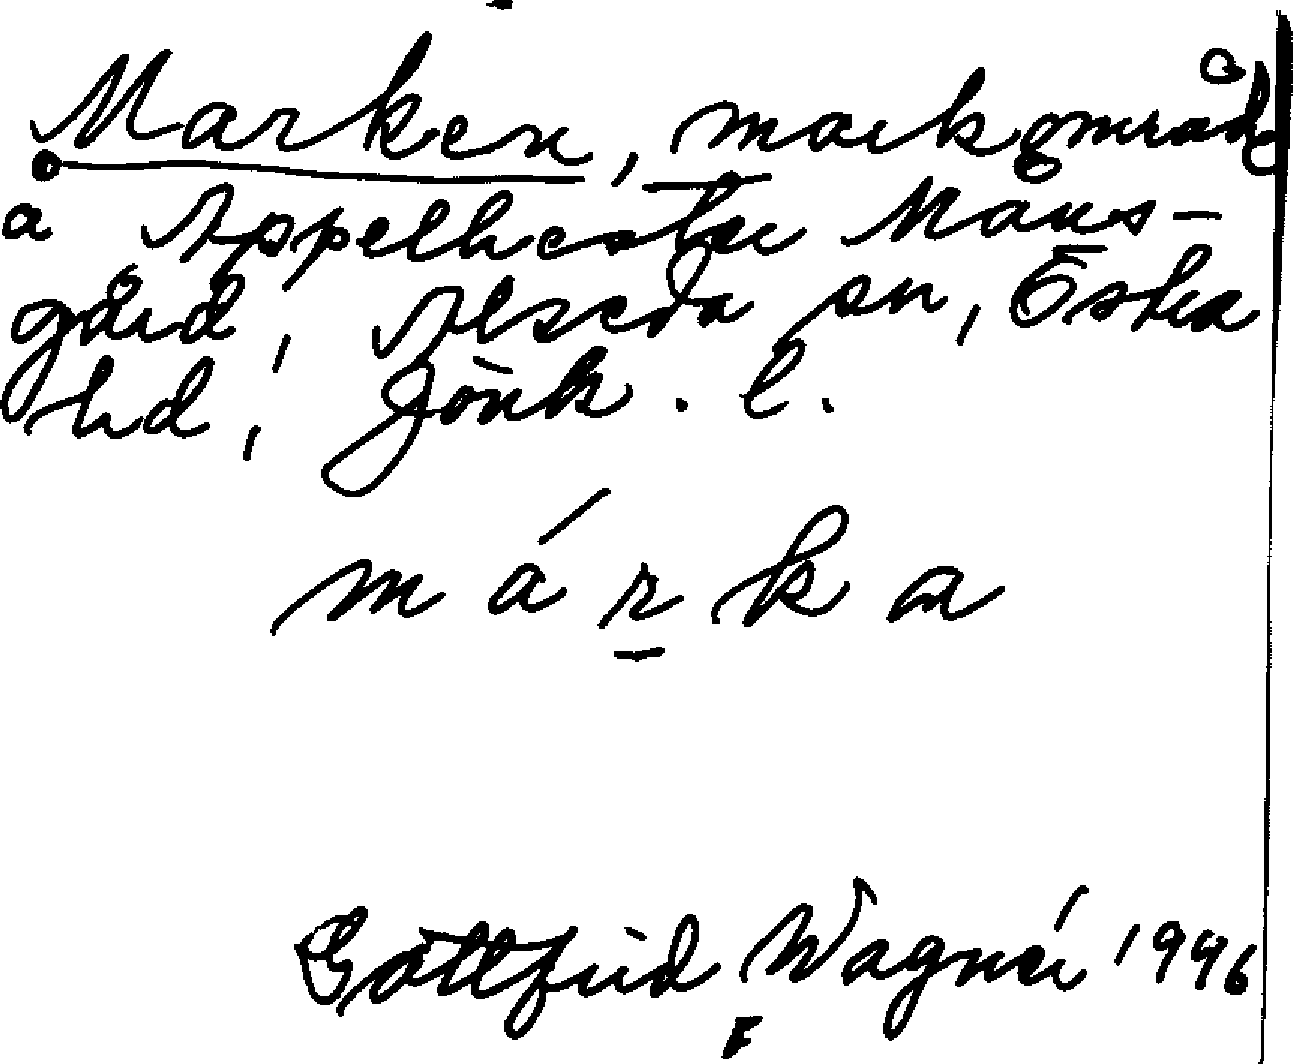 Marken, markområde
å Äppelhester Måns-
gård, Alseda sn, Östra
hd, Jönk. l.
márka
Gottfrid Wagnér 1996
F